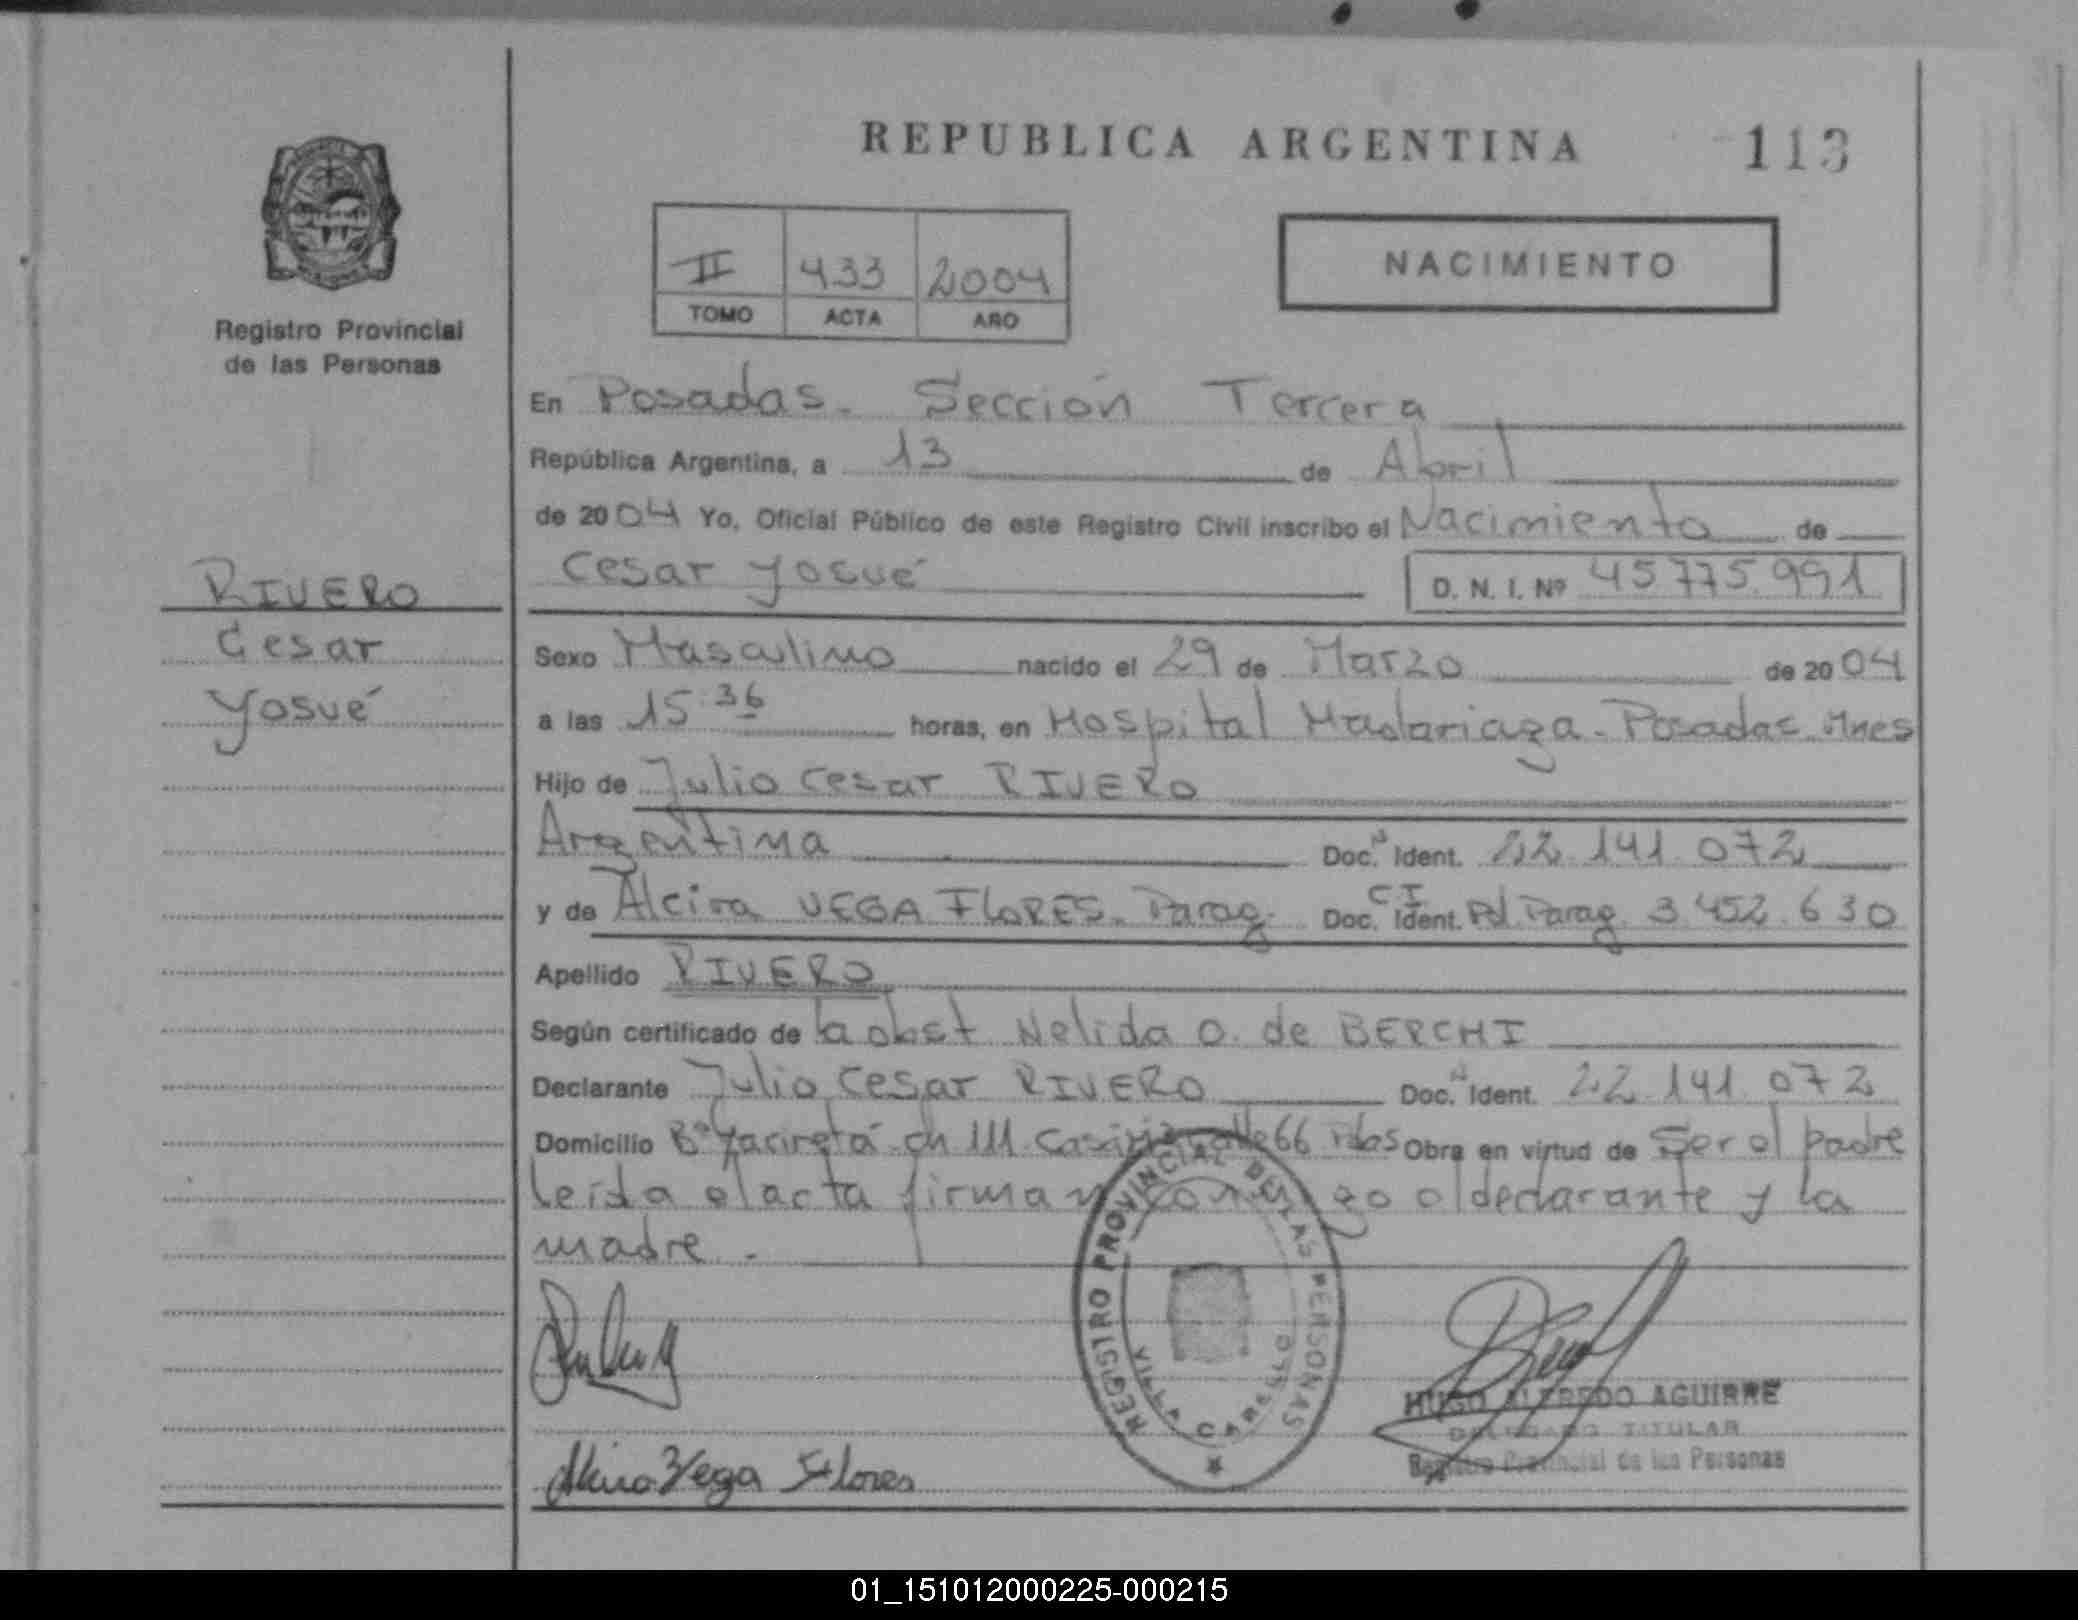 REPUBLICA ARGENTINA
113
Registro Provincial
de las Personas
II 433 2004
TOMO ACTA AÑO
NACIMIENTO
En Posadas. Sección Tercera
República Argentina, a 13 de Abril
de 2004 Yo, Oficial Público de este Registro Civil inscribo el Nacimiento de
Cesar Yosué D. N. I. Nº 45775.991
RIVERO
Cesar
Yosué
Sexo Masculino nacido el 29 de Marzo de 2004
a las 15:36 horas, en Hospital Madariaga. Posadas. Mnes
Hijo de Julio Cesar RIVERO
Argentina Doc. Ident. 22.141.072
y de Alcira VEGA FLORES. Parag. Doc. C.I. Ident. Pol. Parag. 3.452.630
Apellido RIVERO
Según certificado de la obst Nelida O. de BERCHI
Declarante Julio Cesar RIVERO Doc. Ident. 22.141.072
Domicilio Bº Yacireta ch 111 66 Pdas Obra en virtud de Ser el padre
leída el acta firman conmigo el declarante y la
madre.
REGISTRO PROVINCIAL DE LAS PERSONAS
VILLA CABELLO
HUGO ALFREDO AGUIRRE
DELEGADO TITULAR
Registro Provincial de las Personas
Alcira Vega Flores
01_151012000225-000215